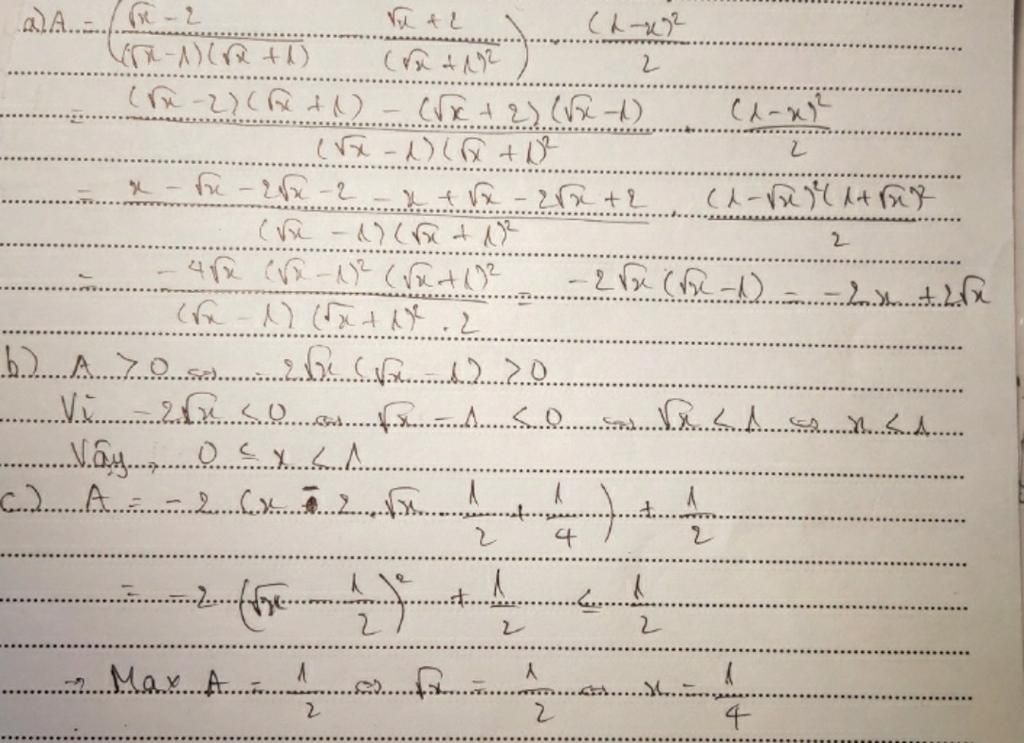 a) A = ( (√x - 2)/((√x - 1)(√x + 1)) (√x + 2)/(√x + 1)² ) . (1 - x)²/2
= ((√x - 2)(√x + 1) - (√x + 2)(√x - 1))/((√x - 1)(√x + 1)²) . (1 - x)²/2
= (x - √x - 2√x - 2 - x + √x - 2√x + 2)/((√x - 1)(√x + 1)²) . ((1 - √x)²(1 + √x)²)/2
= (-4√x (√x - 1)² (√x + 1)²)/((√x - 1)(√x + 1)² . 2) = -2√x (√x - 1) = -2x + 2√x
b) A > 0 ⇔ -2√x (√x - 1) > 0
Vì -2√x < 0 ⇔ √x - 1 < 0 ⇔ √x < 1 ⇔ x < 1
Vậy, 0 ≤ x < 1
c) A = -2 (x - 2 . √x 1/2 + 1/4) + 1/2
= -2 (√x - 1/2)² + 1/2 ≤ 1/2
→ Max A = 1/2 ⇔ √x = 1/2 ⇔ x = 1/4